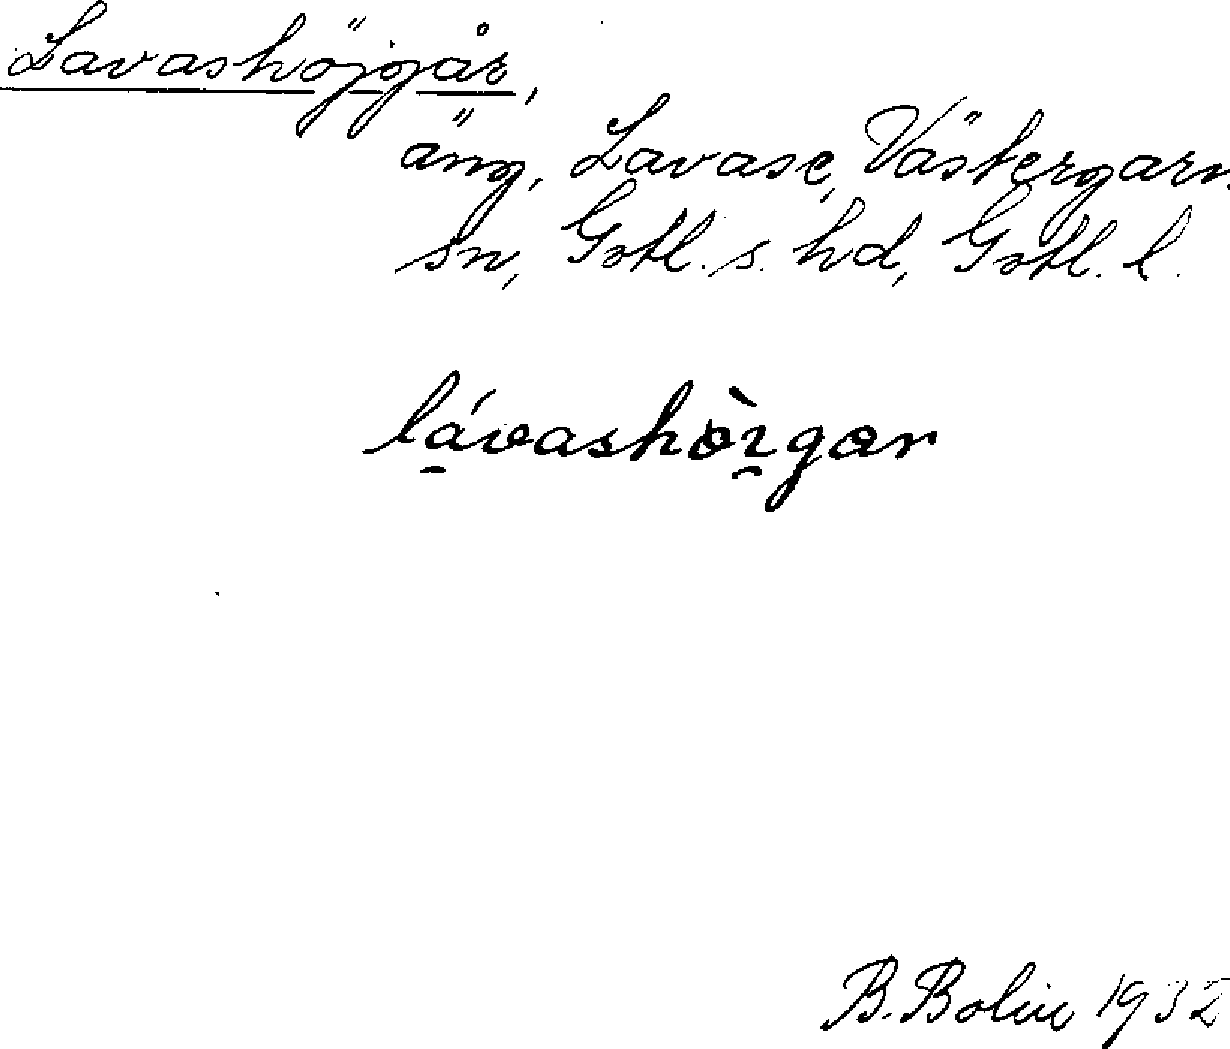 Lavashöjgår,
äng, Lavase, Västergarn
sn, Gotl. s. hd, Gotl. l.
B. Bolin 1932